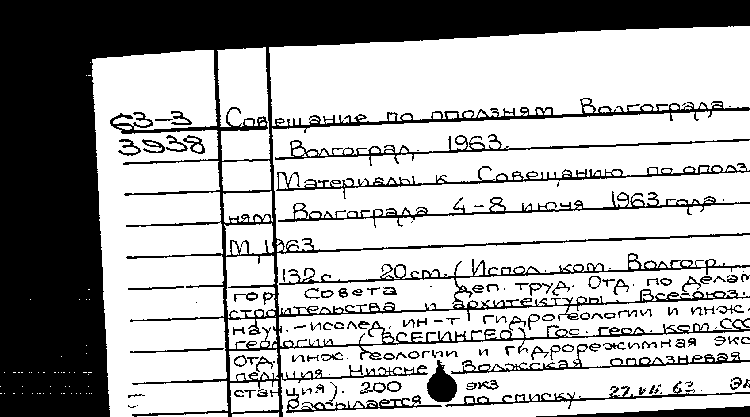 63-3 Совещание по оползням Волгограда.
3938 Волгоград, 1963.
Материалы к Совещанию по ополз
ням Волгограда 4-8 июня 1963 года.
М, 1963
132 с. 20 см. (Испол. ком. Волгогр.
гор Совета деп. труд. Отд. по делам
строительства и архитектуры. Всесоюз.
науч.-исслед. ин-т гидрогеологии и инж.
геологии (ВСЕГИНГЕО) Гос. геол. ком. ССС
Отд. инж. геологии и гидрорежимная экс
педиция. Нижне Волжская оползневая
станция). 200 экз
Рассылается по списку. 27.VII.63.